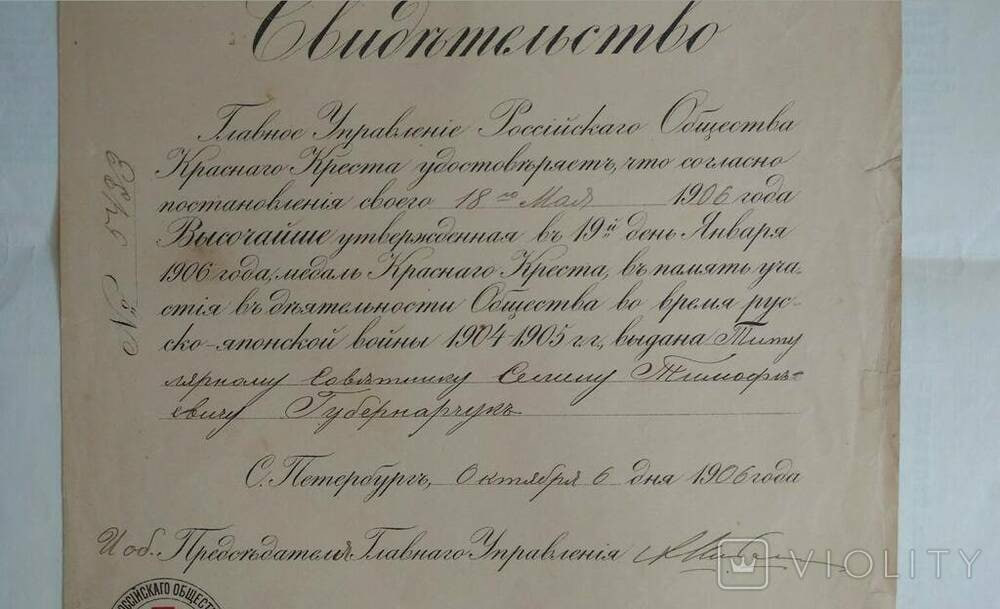 Свидѣтельство
Главное Управленіе Россійскаго Общества
Краснаго Креста удостовѣряетъ, что согласно
постановленія своего 18го Мая 1906 года
Высочайше утвержденная въ 19й день Января
1906 года, медаль Краснаго Креста, въ память уча-
стія въ дѣятельности Общества во время рус-
ско-японской войны 1904-1905 г.г., выдана Титу
лярному Совѣтнику Семину Тимофѣ-
евичу Губернарчукъ
С. Петербургъ, Октября 6 дня 1906 года
И об. Предсѣдателя Главнаго Управленія
№ 5433
РОССІЙСКАГО ОБЩЕСТВ
VIOLITY